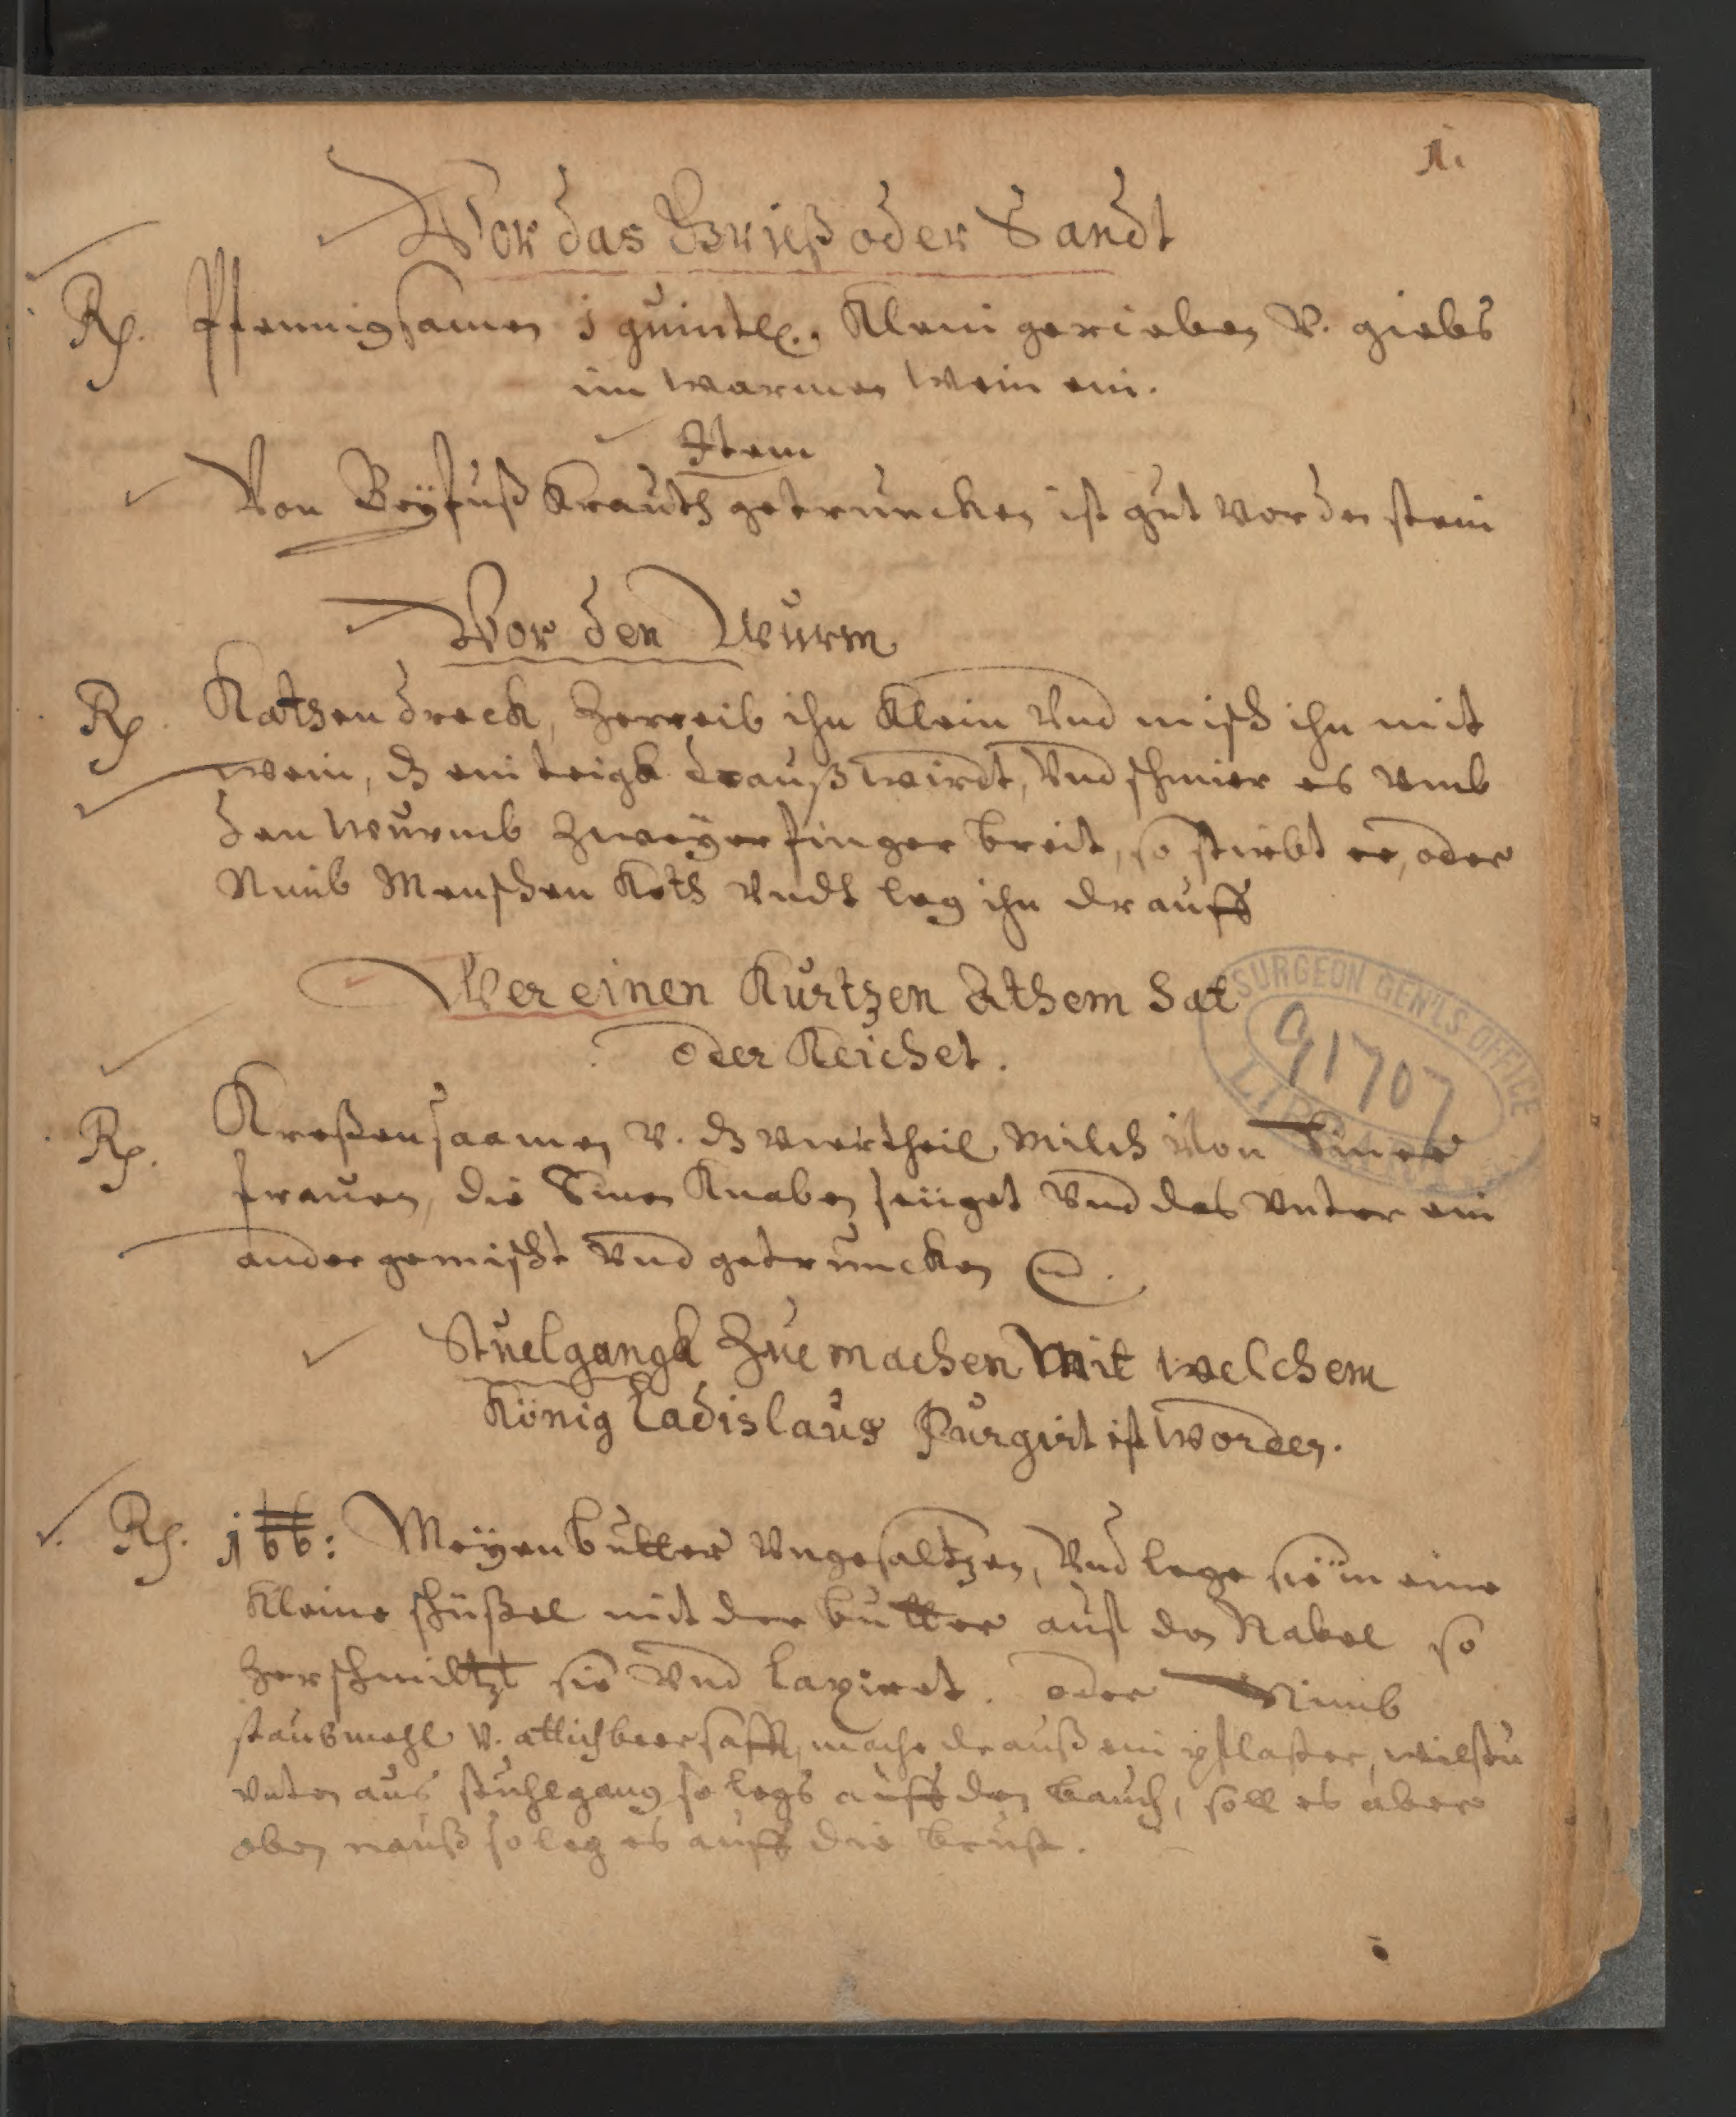 1.
Vor das Grieß oder Sandt
Rp. Pfennigsamen j quintl. Klein gerieben v. giebs
im warmen Wein ein.
Item
Von Beÿfuß Krauth getruncken ist gut vor den stein
Vor den Wurm
Rp. Katzendreck, Zerreib ihn Klein Vnd misch ihn mit
wein, dz ein teigk drauß wirdt, Vnd schmier es vmb
den wurmb Zweÿer finger breit, so stirbt er, oder
Nimb Menschen Koth Vndt leg ihn drauff
Wer einen Kurtzen Athem hat
oder Keichet.
SURGEON GEN'LS OFFICE
91707
LIBRARY
Rp. Kreßensaamen v. dz viertheil Milch Von Einer
frauen, die Einen Knaben seüget Vnd das vnter ein
ander gemischt Vnd getruncken
Stuelgangk Zue machen Mit welchem
König Ladislaus Purgirt ist worden.
Rp. j ℔: Meÿenbutter Vngesaltzen, Vnd lege sie in eine
Kleine schüßel mit der butter auf den Nabel so
Zerschmiltzt sie Vnd laxiret. oder Nimb
staubmehl v. attichbeersafft, mache drauß ein pflaster, wilstu
vnten aus stuhlgang so legs auff den bauch, soll es aber
oben nauß so leg es auff die brust.